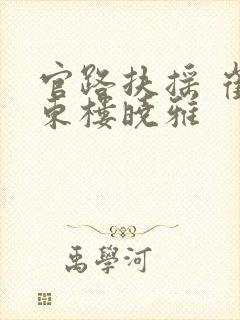 官路扶摇
東樓曉雅
禹學河